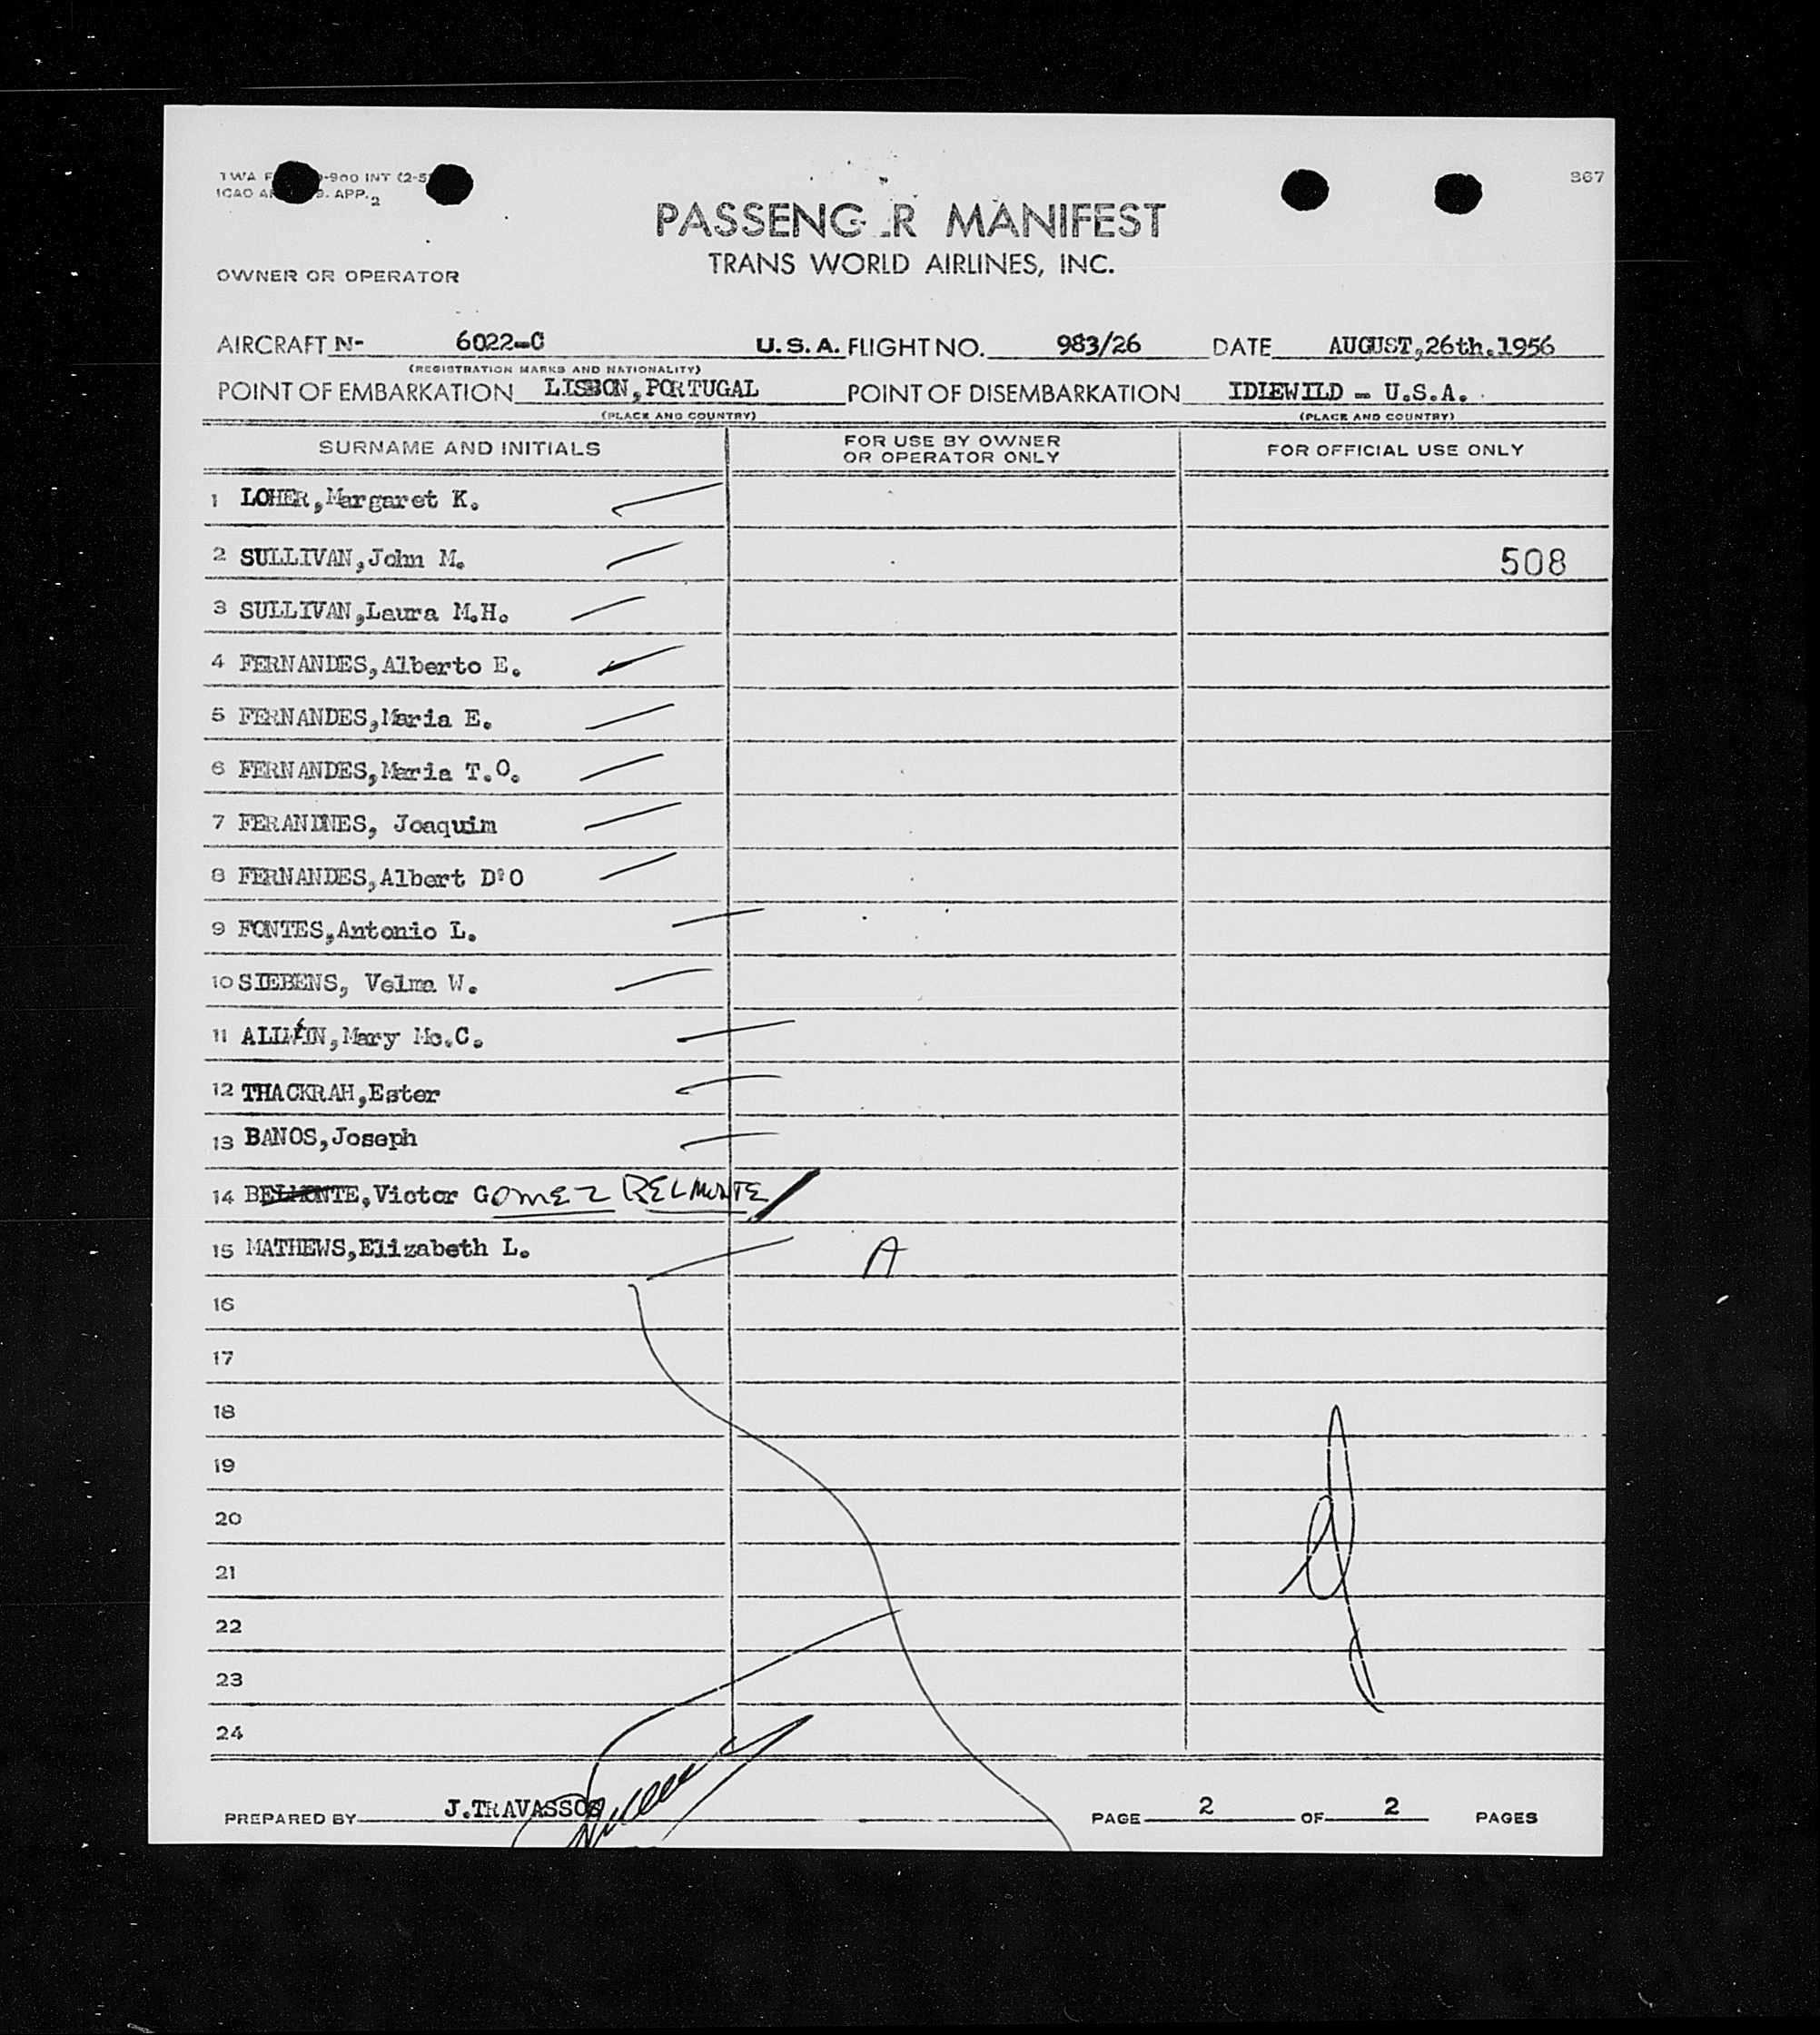 TWA F -900 INT (2-5
ICAO A 9. APP. 2
367
PASSENG R MANIFEST
TRANS WORLD AIRLINES, INC.
OWNER OR OPERATOR
AIRCRAFT N- 6022-C U.S.A. FLIGHT NO. 983/26 DATE AUGUST,26th.1956
(REGISTRATION MARKS AND NATIONALITY)
POINT OF EMBARKATION LISBON,PORTUGAL POINT OF DISEMBARKATION IDIEWILD - U.S.A.
(PLACE AND COUNTRY) (PLACE AND COUNTRY)
SURNAME AND INITIALS FOR USE BY OWNER OR OPERATOR ONLY FOR OFFICIAL USE ONLY
1 LOHER,Margaret K.
2 SULLIVAN,John M. 508
3 SULLIVAN,Laura M.H.
4 FERNANDES,Alberto E.
5 FERNANDES,Maria E.
6 FERNANDES,Maria T.O.
7 FERANDNES, Joaquim
8 FERNANDES,Albert D'O
9 FONTES,Antonio L.
10 SIEBENS, Velma W.
11 Mary Mc.C.
12 THACKRAH,Ester
13 BANOS,Joseph
14 BELMONTE,Victor GOMEZ BELMONTE
15 MATHEWS,Elizabeth L. A
16
17
18
19
20
21
22
23
24
PREPARED BY J.TRAVASSOS PAGE 2 OF 2 PAGES